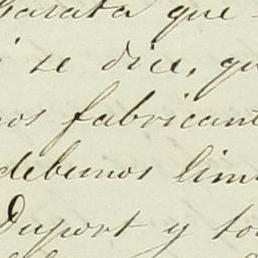 barata que
se dice, qu
nos fabricant
debemos lim
Duport y to